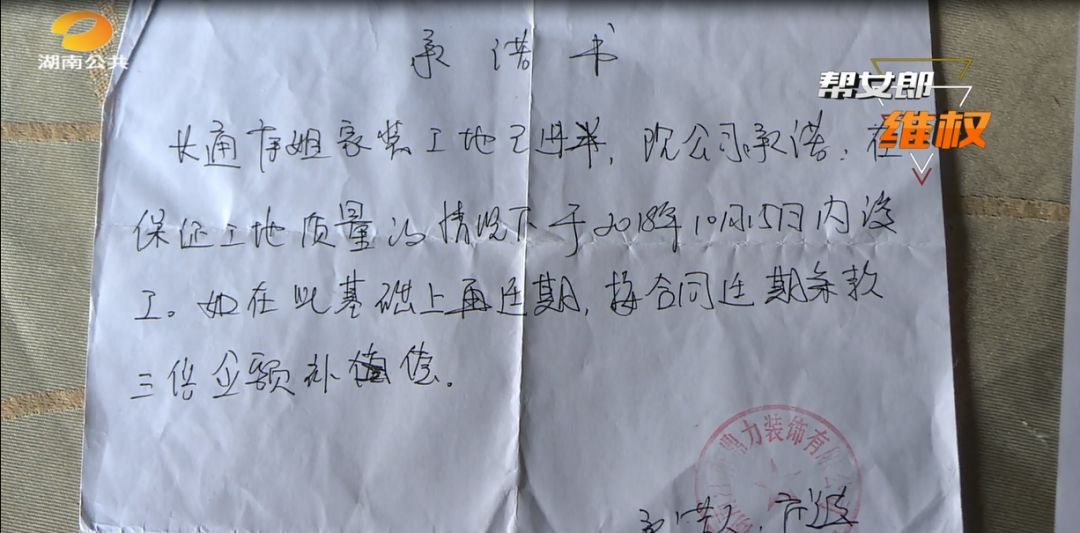 湖南公共
帮女郎
维权
承诺书
长通 姐家装工地已 ，院公司承诺：在
保证工地质量的情况下于2018年10月15日内竣
工。如在此基础上再延期，按合同延期条款
三倍金额补偿。
力装饰有
承诺人：